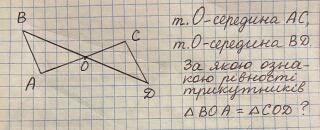 B
C
O
A
D
т. O-середина AC,
т. O-середина BD.
За якою озна-
кою рівності
трикутників
△BOA = △COD ?